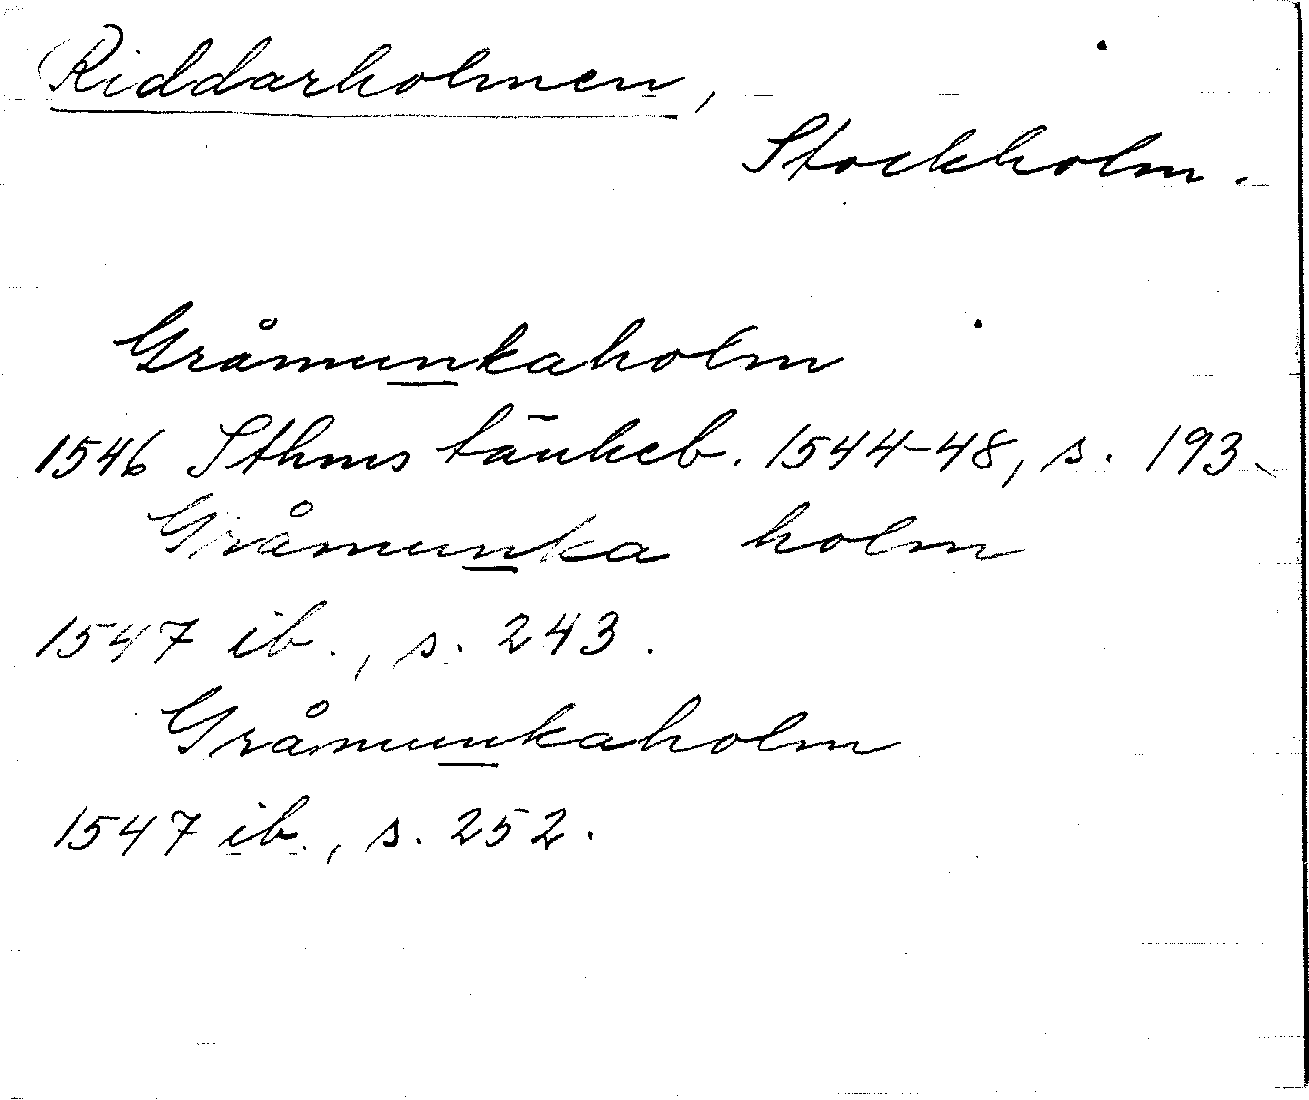 Riddarholmen,
Stockholm.
Gråmunkaholm
1546 Sthms tänkeb. 1544-48, s. 193.
Gråmunka holm
1547 ib., s. 243.
Gråmunkaholm
1547 ib., s. 252.